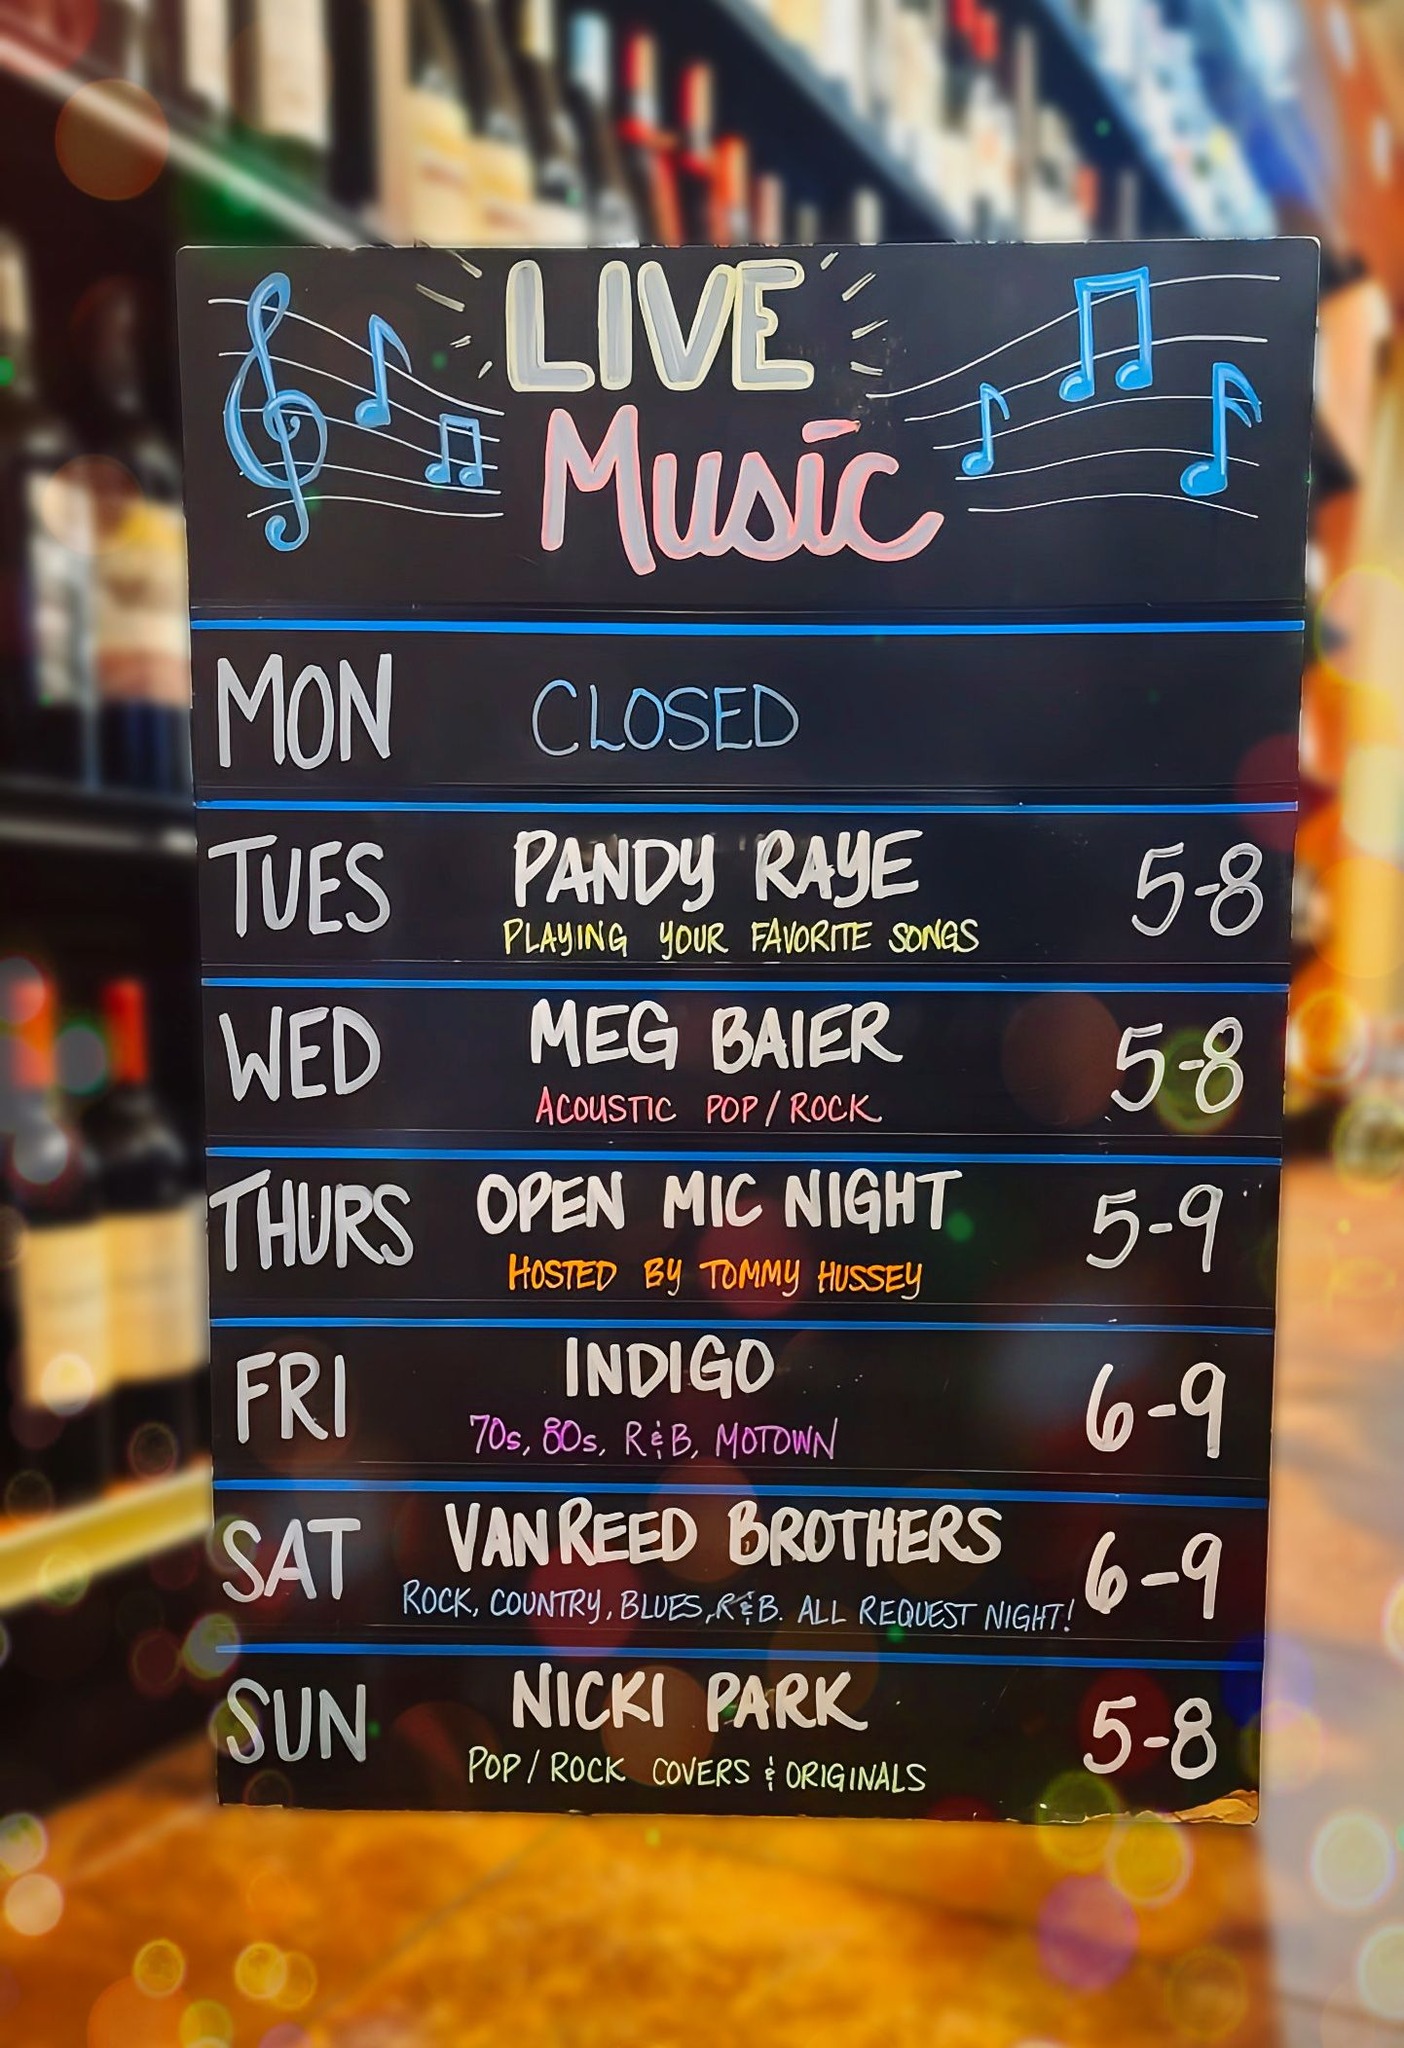 LIVE
Music
MON CLOSED
TUES PANDY RAYE 5-8
PLAYING YOUR FAVORITE SONGS
WED MEG BAIER 5-8
ACOUSTIC POP/ROCK
THURS OPEN MIC NIGHT 5-9
HOSTED BY TOMMY HUSSEY
FRI INDIGO 6-9
70s, 80s, R&B, MOTOWN
SAT VANREED BROTHERS 6-9
ROCK, COUNTRY, BLUES, R&B. ALL REQUEST NIGHT!
SUN NICKI PARK 5-8
POP/ROCK COVERS & ORIGINALS